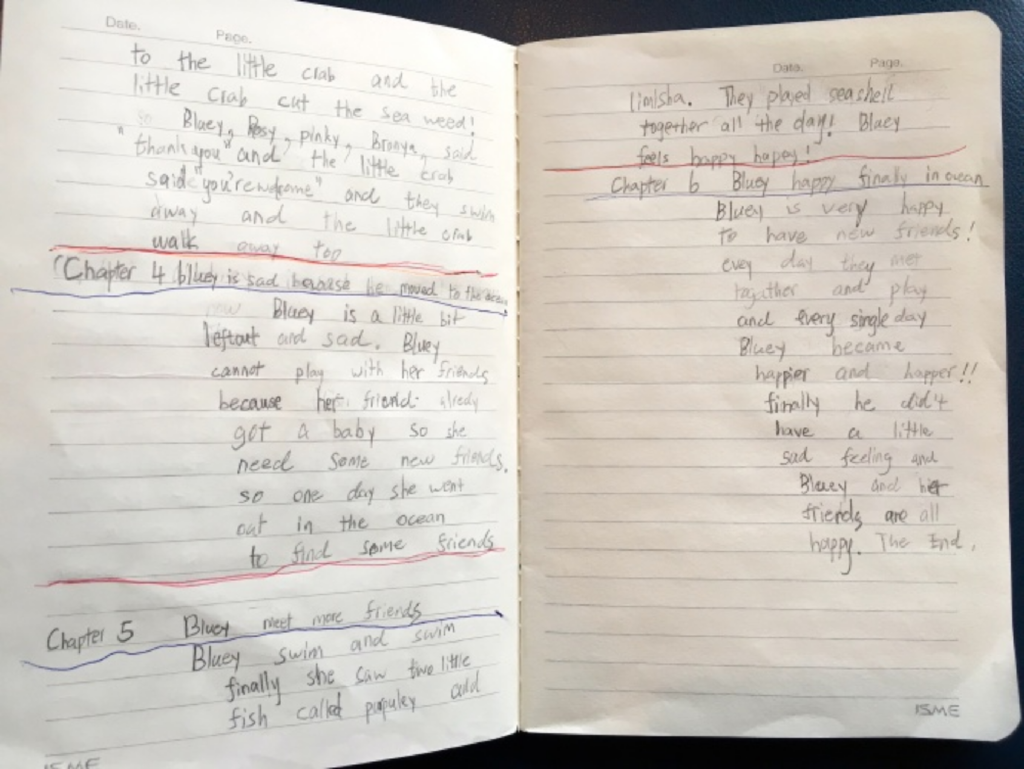 Date.
Page.
to the little crab and the
little crab cut the sea weed!
so Bluey, Rosy, pinky, Bronya, said
"thank you" and the little crab
said "you're welcome" and they swim
away and the little crab
walk away too
Chapter 4 bluey is sad because he moved to the ocean
now Bluey is a little bit
leftout and sad. Bluey
cannot play with her friends
because her friend alredy
got a baby so she
need some new friends.
so one day she went
out in the ocean
to find some friends
Chapter 5 Bluey meet more friends
Bluey swim and swim
finally she saw two little
fish called pupuley and
ISME
Date.
Page.
limisha. They played seashell
together all the day! Bluey
feels happy happy!
Chapter 6 Bluey happy finally in ocean
Bluey is very happy
to have new friends!
evey day they met
together and play
and every single day
Bluey became
happier and happer!!
finally he didt
have a little
sad feeling and
Bluey and her
friends are all
happy. The End.
ISME